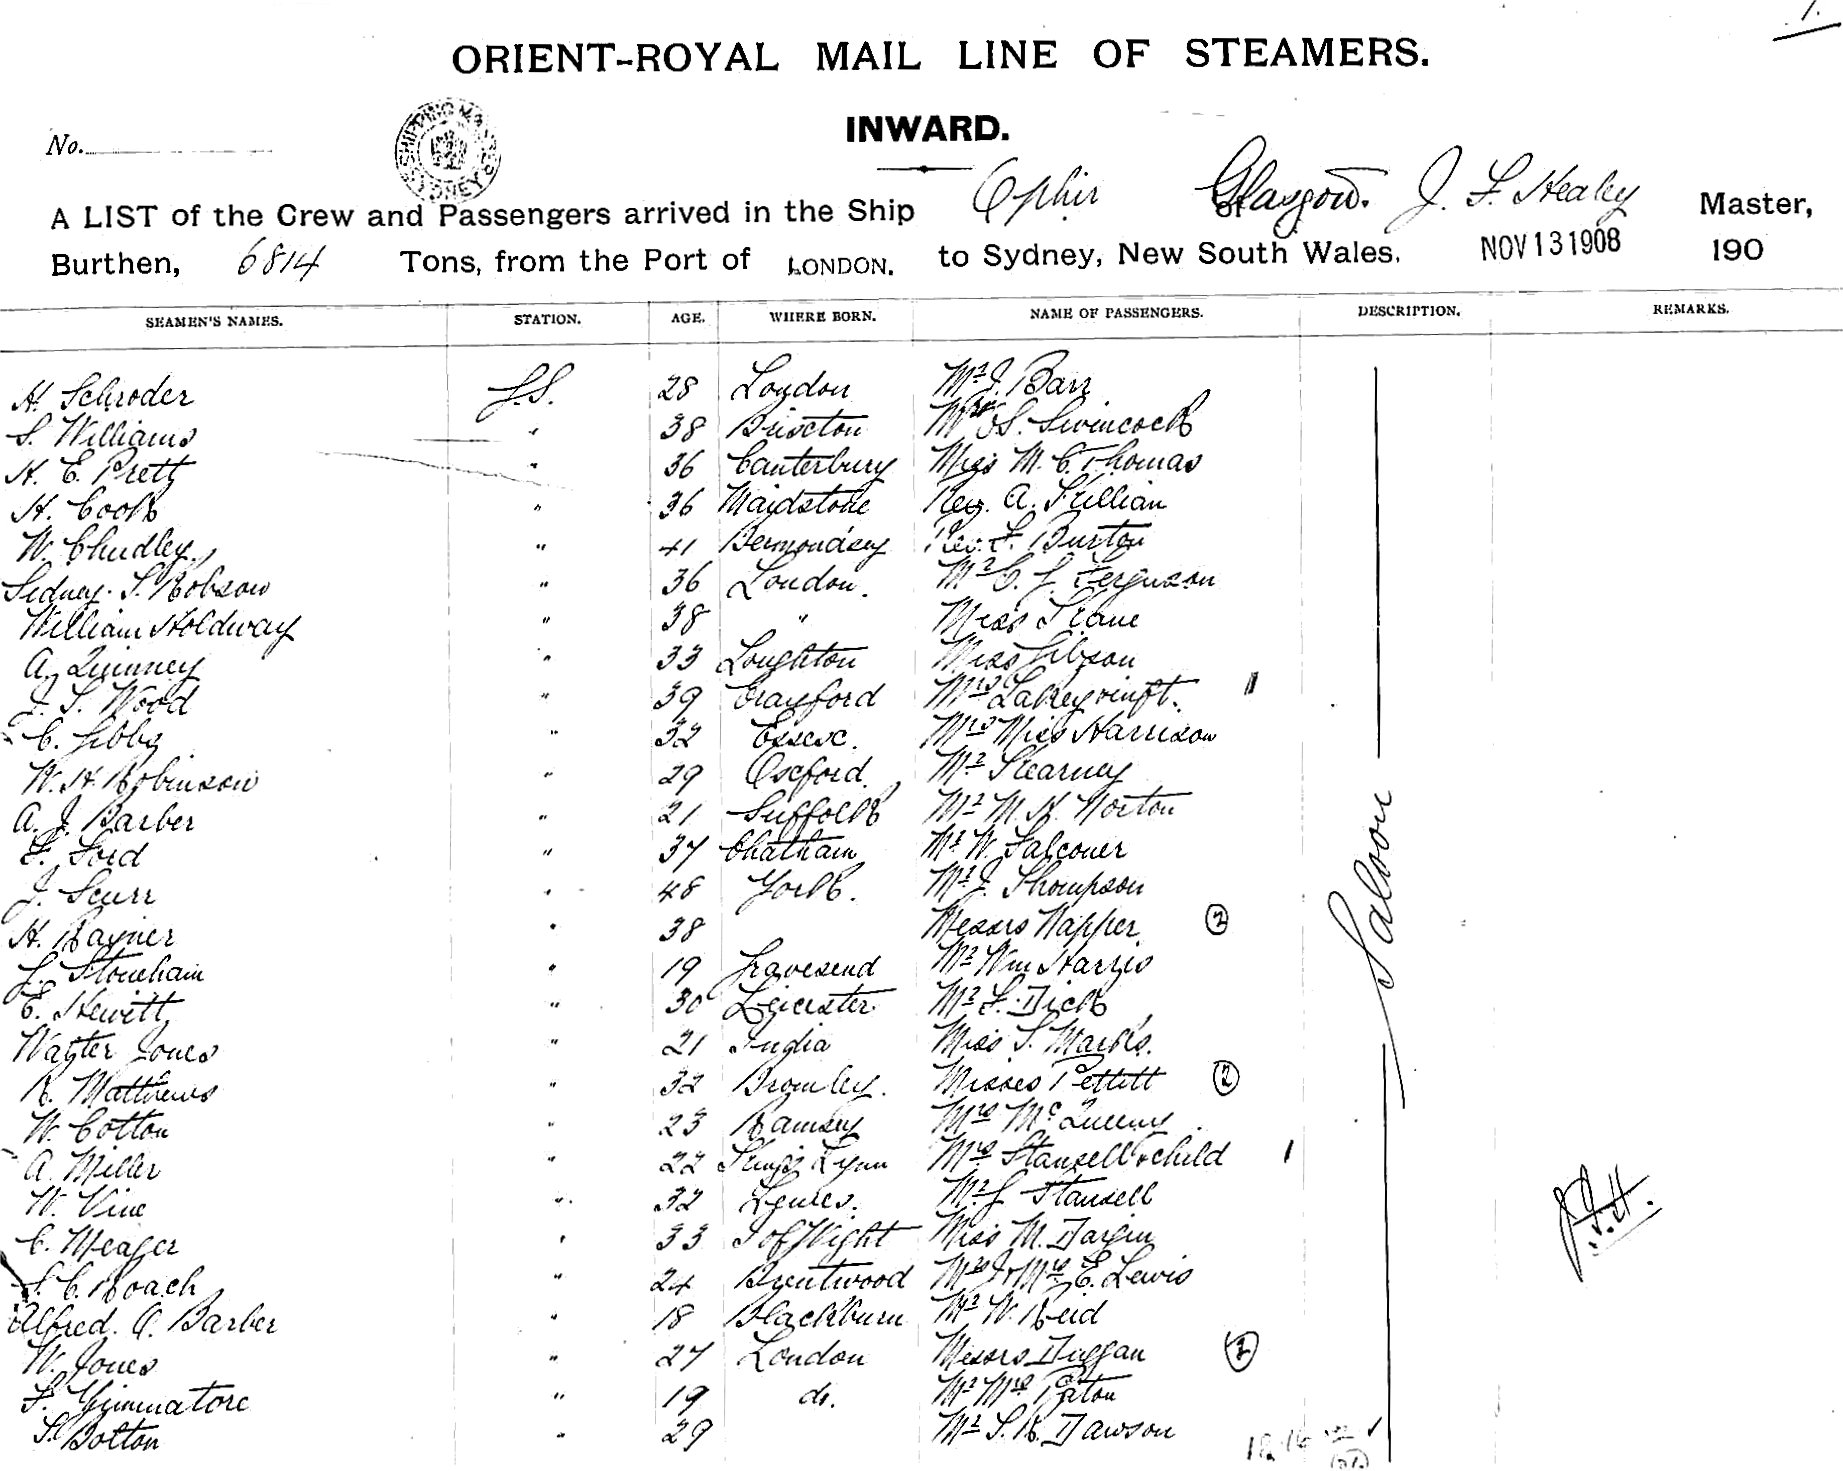 1.
ORIENT-ROYAL MAIL LINE OF STEAMERS.
INWARD.
No.
SHIPPING MASTER SYDNEY
A LIST of the Crew and Passengers arrived in the Ship Ophir of Glasgow. J. F. Healey Master,
Burthen, 6814 Tons, from the Port of LONDON. to Sydney, New South Wales. NOV 13 1908 190
SEAMEN'S NAMES. STATION. AGE. WHERE BORN. NAME OF PASSENGERS. DESCRIPTION. REMARKS.
H. Schroder 28 London Mr J. Barr
S. Williams " 38 Brixton S. Swincock
H. E. Prett " 36 Canterbury Miss M. C. Thomas
H. Cook " 36 Maidstone Rev. A. Killian
W. Chudley " 41 Bermondsey Rev. F. Burton
Sidney. S. Robson " 36 London. Mr C. J. Ferguson
William Holdway " 38 " Miss Kane
A. Quinney " 33 Loughton Miss Gibson
J. S. Wood " 39 Crayford Mrs
C. Gibby " 32 Essex. Mrs Miss Harrison
W. H. Robinson " 29 Oxford. Mr Kearney
A. J. Barber " 21 Suffolk Mr M. H. Norton
F. Ford " 37 Chatham Mr W. Falconer
J. Scurr " 48 York. Mr J. Thompson
H. Rayner " 38 Messrs Napper 2
J. Stoneham " 19 Gravesend Mr Wm Harris
E. Hewitt " 30 Leicester. Mr F. Dick
Walter Jones " 21 India Miss S. Marks.
R. Matthews " 32 Bromley. Misses Pettitt 2
W. Cotton " 23 Ramsey Mrs
A. Miller " 22 Kings Lynn Mrs Stansell & child
W. Vine " 32 Lewes. Mr J Stansell
C. Meager " 33 I of Wight Miss M. Dargin
S. C. Roach " 24 Brentwood Mr J & Mrs E. Lewis
Alfred. A. Barber " 18 Blackburn Mr W. Reid
W. Jones " 27 London Messrs Duggan 2
F. " 19 do. Mr Mrs Paton
S. Bolton " 29 Mr S. R. Dawson
Saloon
J.F.H.